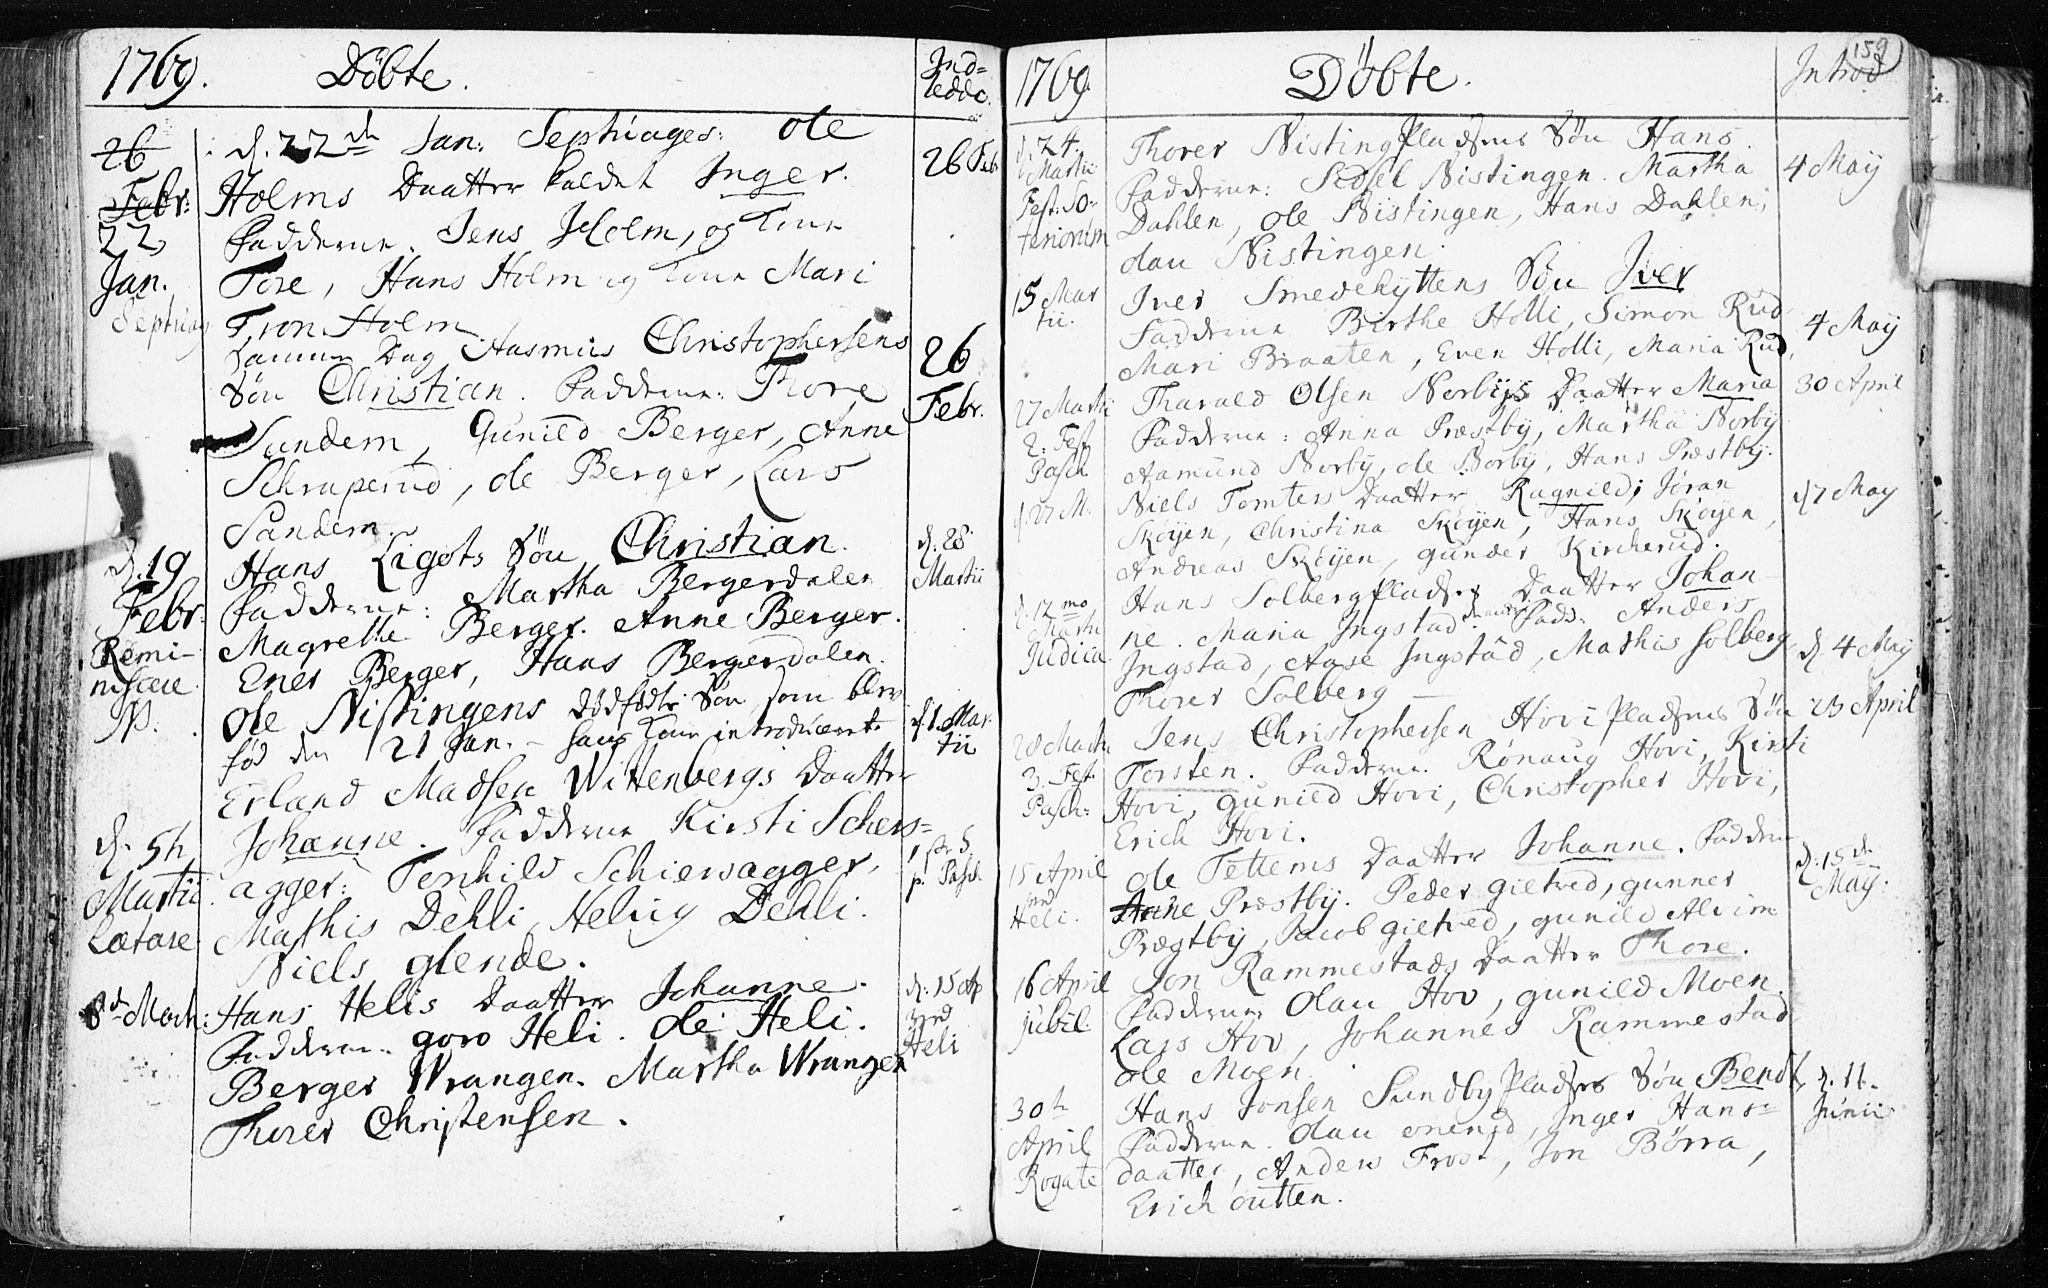 1769.
Døbte.
Ind=
ledde.
26
Febr:
22
Jan.
Septuag
d. 22de Jan: Septuages: Ole
Holms Daatter kaldet Inger.
Fadderne. Jens Holm, og Kone
Tore, Hans Holm og Kone Mari
Tron Holm
26 Feb
samme Dag Aasmus Christophersens
Søn Christian. Fadderne: Thore
Sandem, Gunild Berger, Anne
Schraperud, Ole Berger, Lars
Sandem.
26
Febr.
d. 19
Febr.
Remi-
niscere
Hans Ligots Søn Christian.
Fadderne: Martha Bergerdalen
Magrethe Berger. Anne Berger.
Ener Berger, Hans Bergerdalen.
d. 28
Martii
NB.
Ole Nistingens dødfødte Søn som blev
fød den 21 Jan. - hans Kone introduceret
d. 1. Mar-
tii
Erland Madsen Wittenbergs Daatter
d. 5th
Martii.
Lætare
Johanne. Fadderne Kirsti Schers=
agger: Torhild Schiersagger,
Mathis Dehli, Helvig Dehli.
Niels glende.
p. Pasch
8de Mart:
Hans Helis Daatter Johanne.
Fadderne. goro Heli. Ole Heli.
Berger Wrangen. Martha Wrangen
Thorer Christensen.
d. 15 Ap
ved
Heli
1769.
Døbte.
Introd
159
d. 24
Martii
Fest: So-
teriorum
Thorer Nisting Pladsens Søn Hans.
Fadderne: Sidsel Nistingen. Martha
Dahlen, Ole Nistingen, Hans Dahlen;
Olau Nistingen.
4 May
15 Mar
tii.
Iver Smedehyttens Søn Iver
Fadderne Birthe Holli, Simon Rud
Mari Braaten, Even Holli, Maria Rud,
4 May
27 Martii
2. Fest
Pasch
Tharald Olsen Norbys Daatter Maria
Fadderne: Anna Præstby, Martha Norby
Aamund Norby, Ole Norby, Hans Præstby.
30 April
d. 27 M.
Niels Tomters Daatter Ragnild; Jøran
Skøyen, Christina Skøyen, Hans Skøyen,
Andreas Skøyen, gunder Kircherud.
d 7 May
d. 12mo
Martii
Judica
Hans Solberg Pladsen Daatter Johan-
ne. Maria Ingstad Fadd: Anders
Ingstad, Aase Ingstad, Mathis Solberg
Thorer Solberg
d. 4 May
28 Martii
3. Fest
Pasch:
Jens Christophersen Hovi Pladsens Søn
Torsten. Fadderne. Rønaug Hovi, Kirsti
Hovi, gunild Hovi, Christopher Hovi,
Erich Hovi.
23 April
15 April
ved
Heli.
Ole Tettems Daatter Johanne. Fadderne
Anne Præstby. Peder gietved, gunner
Præstby, Jacob gietved, gunild Alvim
d. 15de
May.
16 April
Jubil.
Jon Rammestads Daatter Thore.
Fadderne Olau Hov, gunild Moen.
Lars Hov, Johannes Rammestad
Ole Moen.
30th
April
Rogate
Hans Jonsen Sundby Pladsen Søn Bendt,
Fadderne. Olau Inger Hans=
daatter, Anders Frost, Jon Børra,
Erich Outten.
d. 11.
Junii